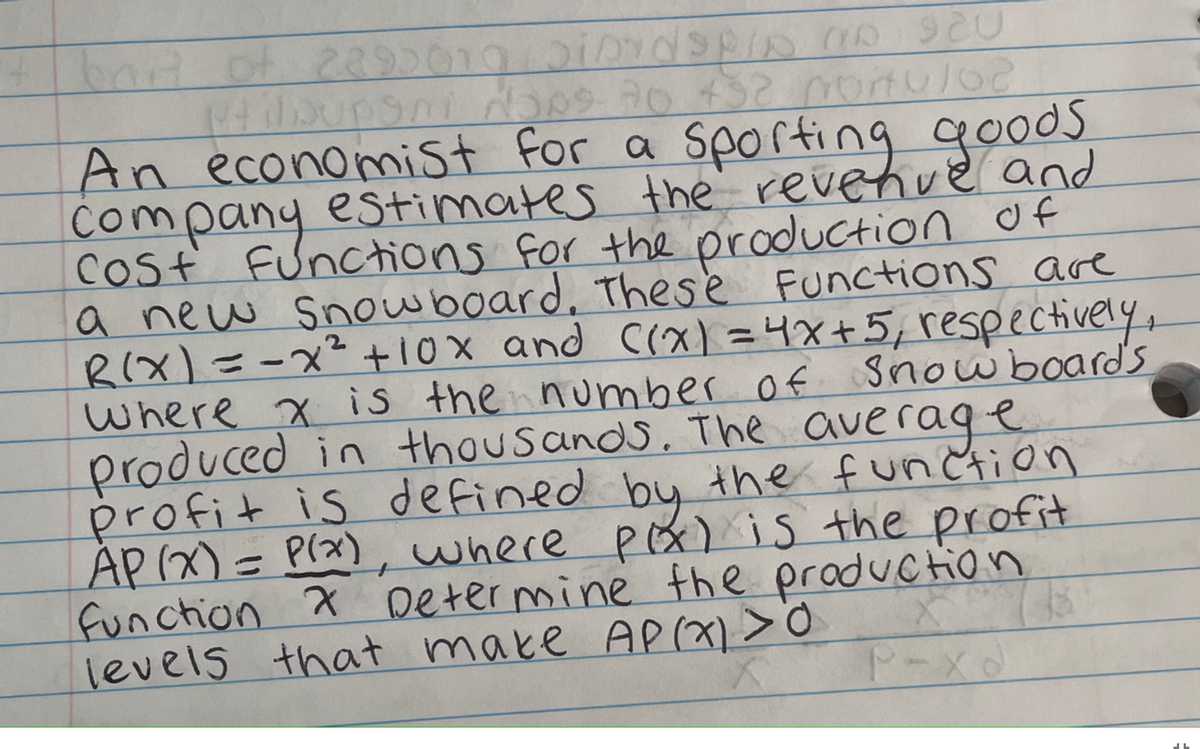 Use an algebraic process to find t
Solution set of each inequality
An economist for a sporting goods
company estimates the revenue and
cost functions for the production of
a new snowboard. These functions are
R(x) = -x² +10x and C(x) = 4x+5, respectively,
where x is the number of snowboards
produced in thousands. The average
profit is defined by the function
AP(x) = P(x)/x, where P(x) is the profit
function Determine the production
levels that make AP(x) > 0
6x-9
x